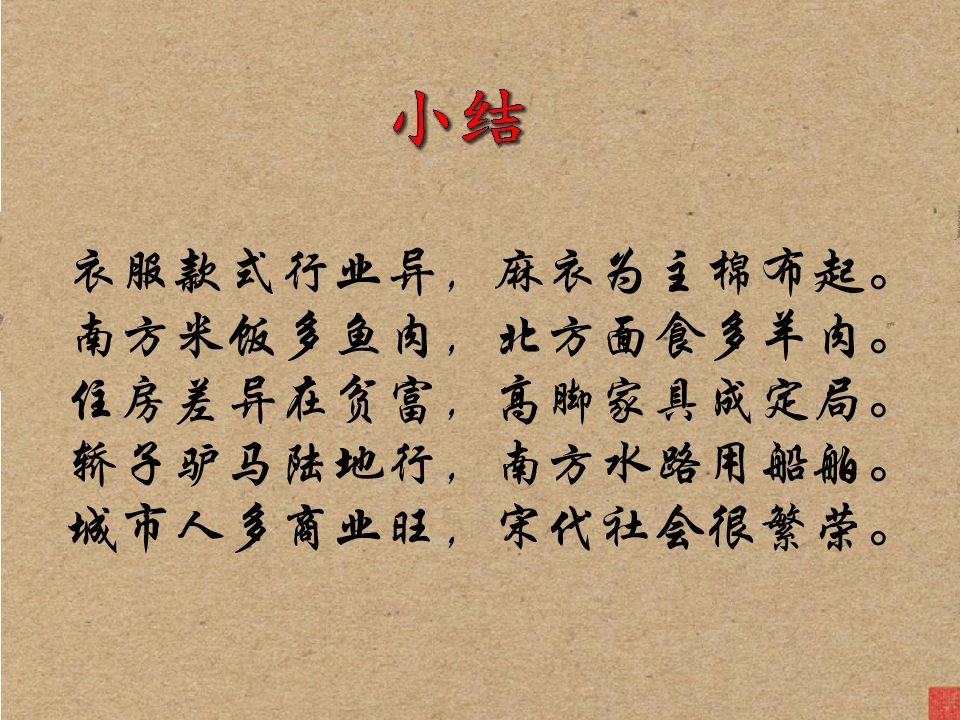 小结
衣服款式行业异，麻衣为主棉布起。
南方米饭多鱼肉，北方面食多羊肉。
住房差异在贫富，高脚家具成定局。
轿子驴马陆地行，南方水路用船舶。
城市人多商业旺，宋代社会很繁荣。